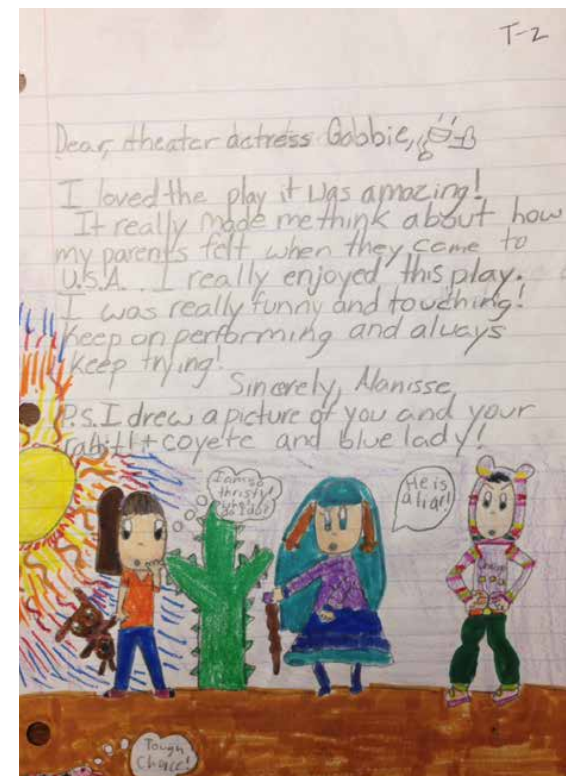 T-2
Dear, theater actress Gabbie,
I loved the play it was amazing!
It really made me think about how
my parents felt, when they came to
U.S.A.. I really enjoyed this play.
I was really funny and touching!
Keep on performing and always
keep trying!
Sincerely, Alanisse
P.S. I drew a picture of you and your
rabitt + coyete and blue lady!
I am so
thristy!
He is
a liar!
Tough
Choice!